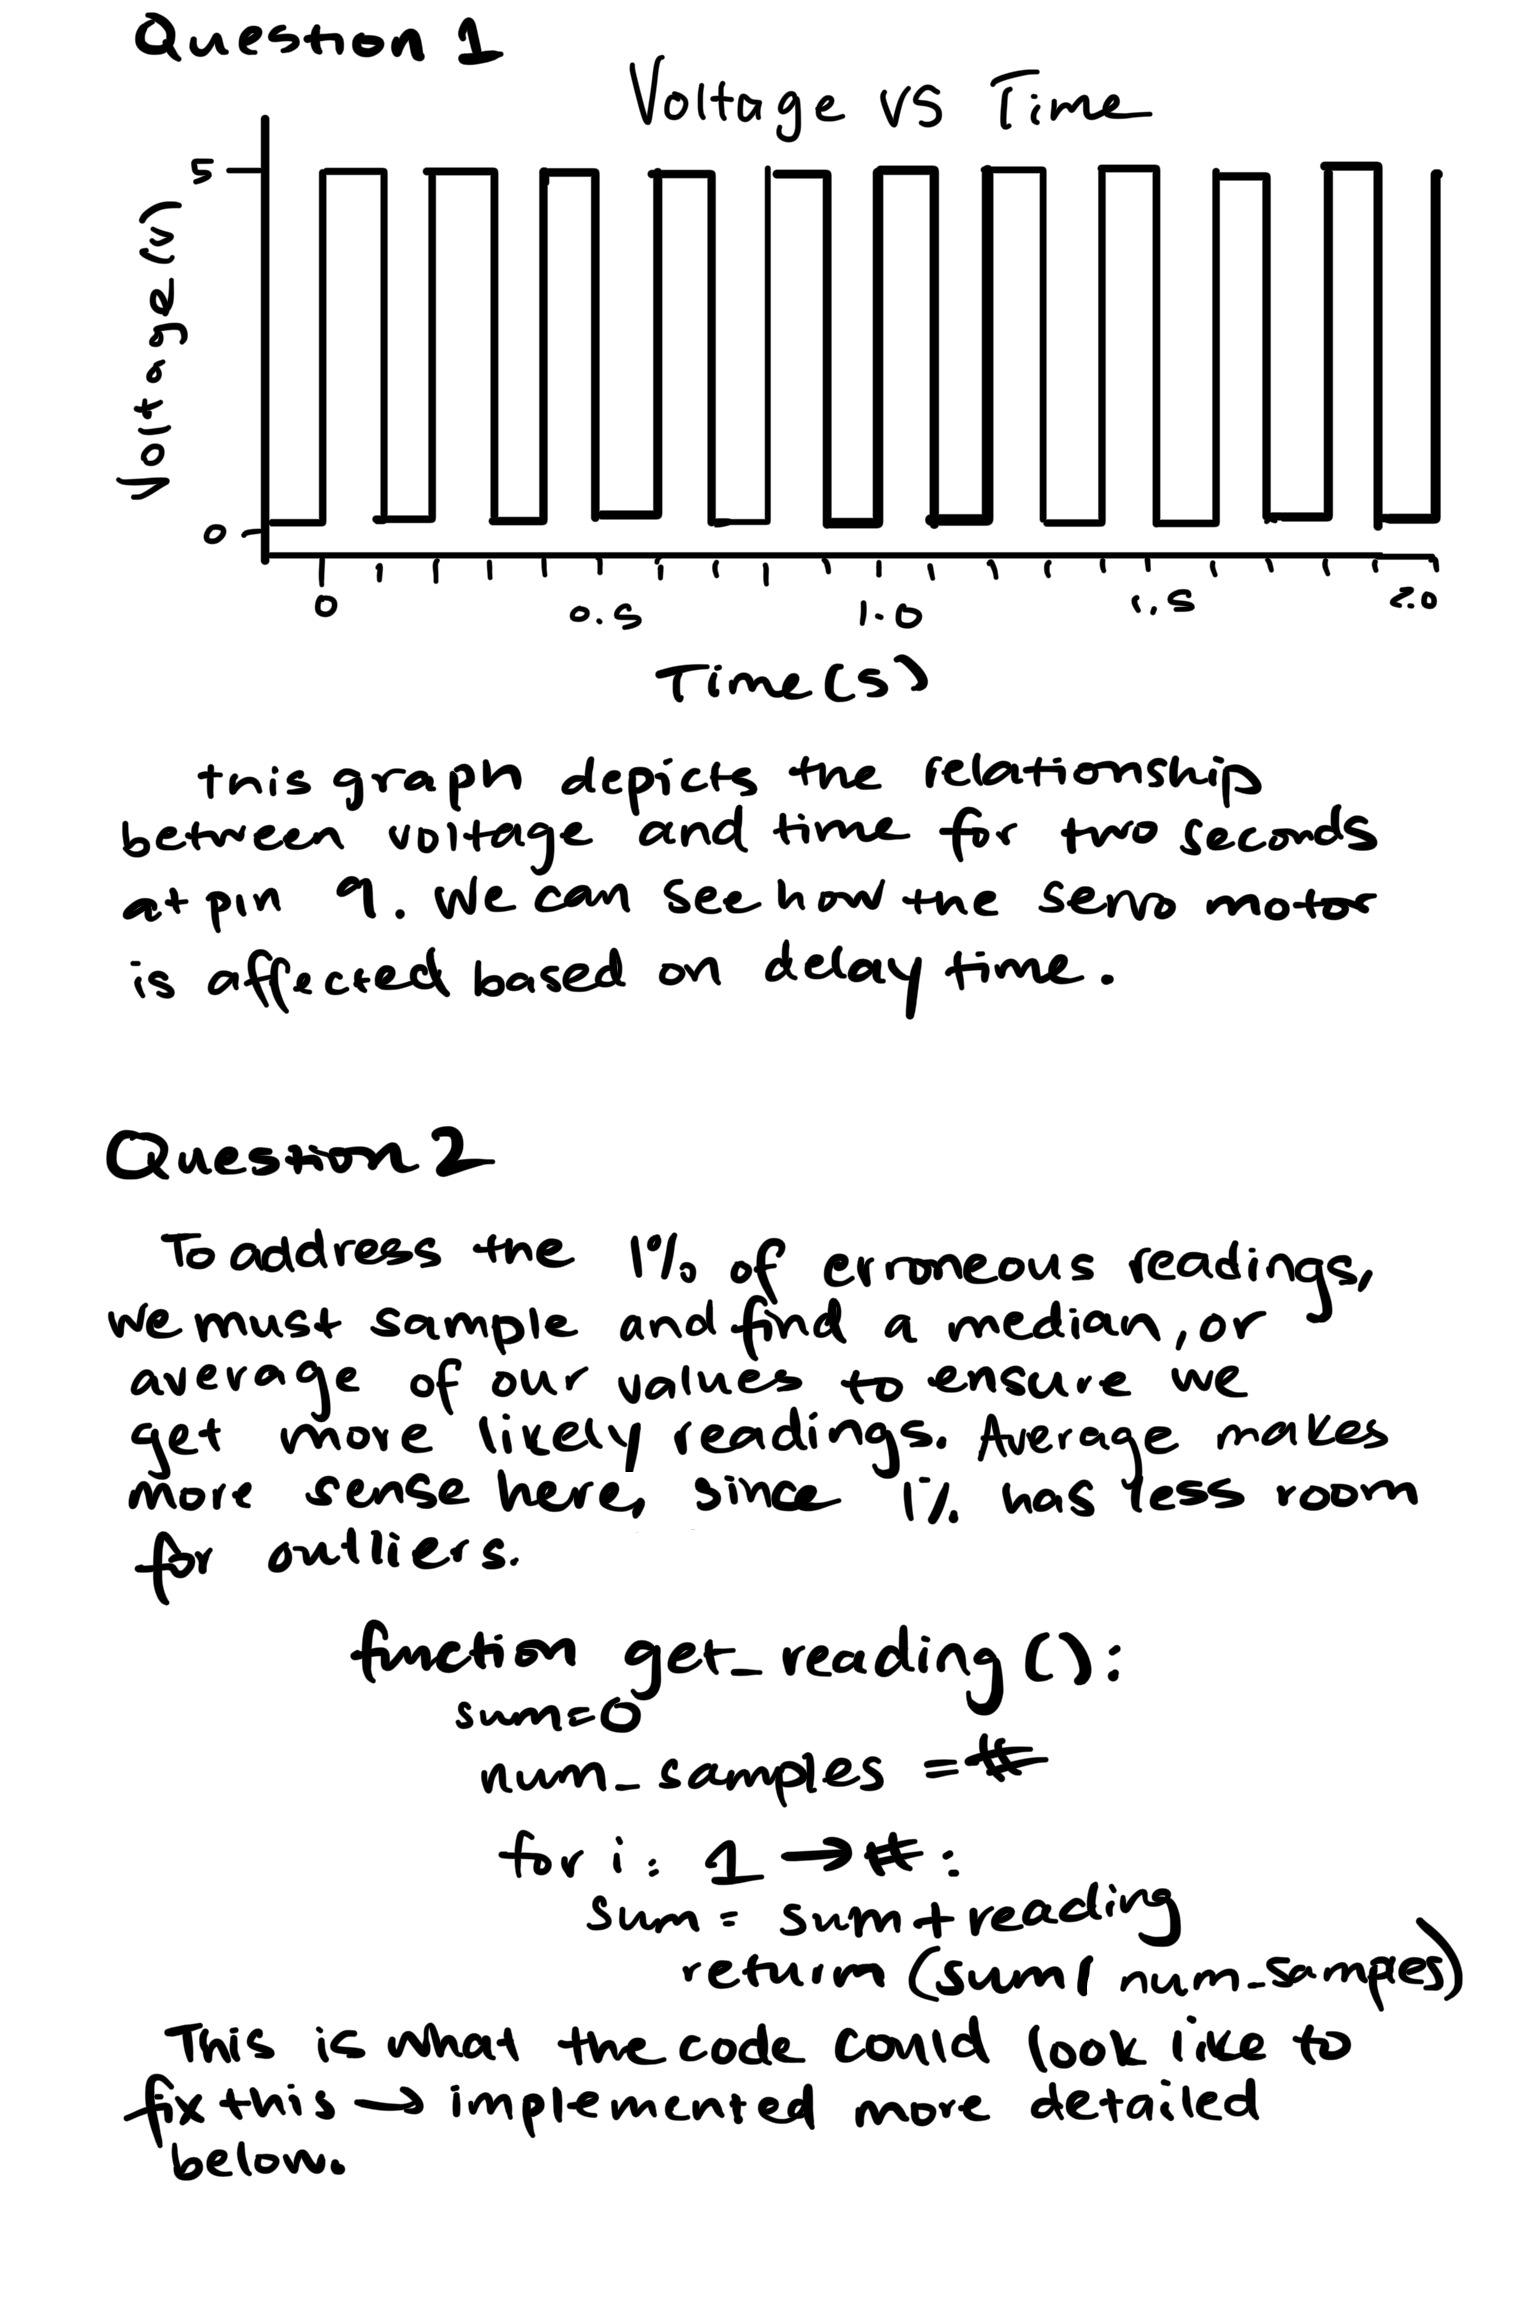 Question 1
Voltage vs Time
5
Voltage (V)
0
0 0.5 1.0 1.5 2.0
Time (s)
this graph depicts the relationship
between voltage and time for two seconds
at pin 9. We can see how the servo motor
is affected based on delay time.
Question 2
To address the 1% of erroneous readings,
we must sample and find a median, or
average of our values to ensure we
get more likely readings. Average makes
more sense here, since 1% has less room
for outliers.
function get_reading():
sum=0
num_samples = #
for i: 1 → #:
sum = sum + reading
return (sum/ num_samples)
This is what the code could look like to
fix this → implemented more detailed
below.